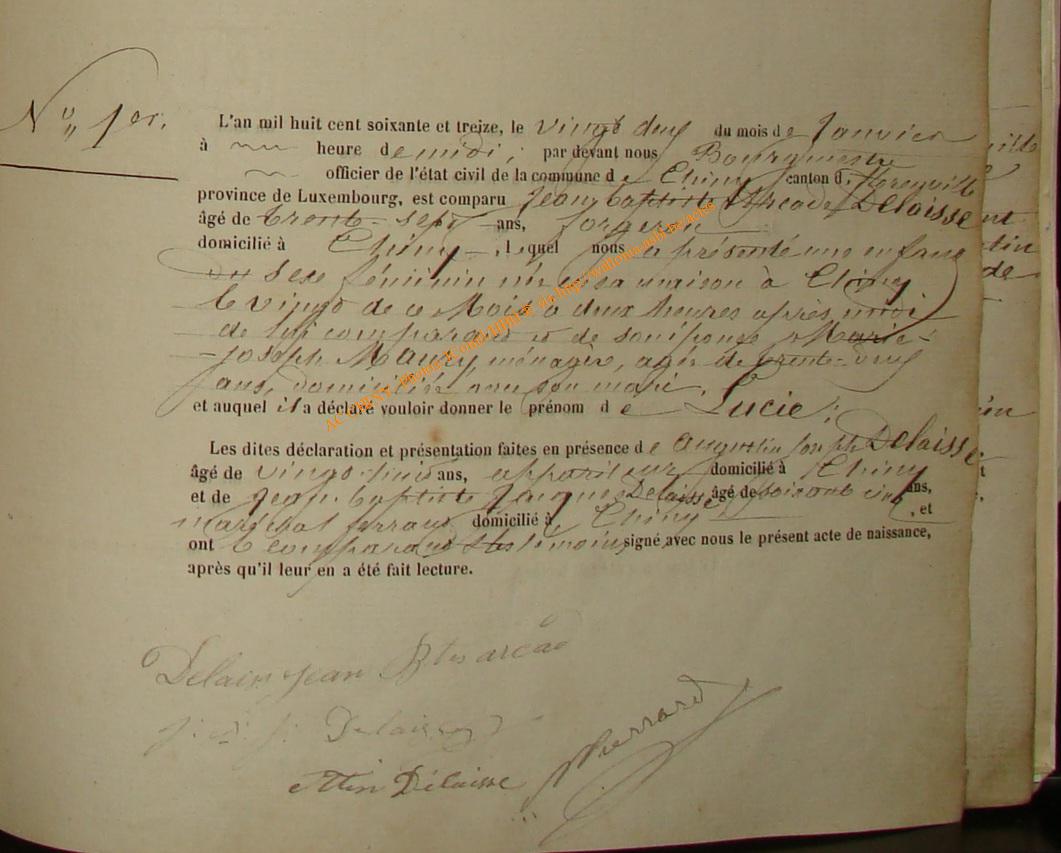 N° 1er.
L'an mil huit cent soixante et treize, le vingt deux du mois de Janvier
à heure de midi, par devant nous Bourgmestre
officier de l'état civil de la commune de Chiny canton de florenville
province de Luxembourg, est comparu Jean Baptiste Arcade Delaisse
âgé de trente-sept ans, forgeron
domicilié à Chiny, lequel nous a présenté une enfant
du sexe féminin née en sa maison à Chiny
le vingt de ce Mois à deux heures après midi
de lui comparant et de son épouse Marie-
Joseph Mauxy, ménagère, agée de trente-deux
ans, domiciliée avec son mari.
et auquel il a déclaré vouloir donner le prénom de Lucie;
Les dites déclaration et présentation faites en présence de Augustin Joseph Delaisse
âgé de vingt-huit ans, appariteur domicilié à Chiny
et de Jean Baptiste Jacques Delaisse âgé de soixante cinq ans,
maréchal ferrant domicilié à Chiny, et
ont le comparant et les témoins signé avec nous le présent acte de naissance,
après qu'il leur en a été fait lecture.
Delaisse jean Bte arcade
j. b. j. Delaisse
Attin Delaisse Pierrard